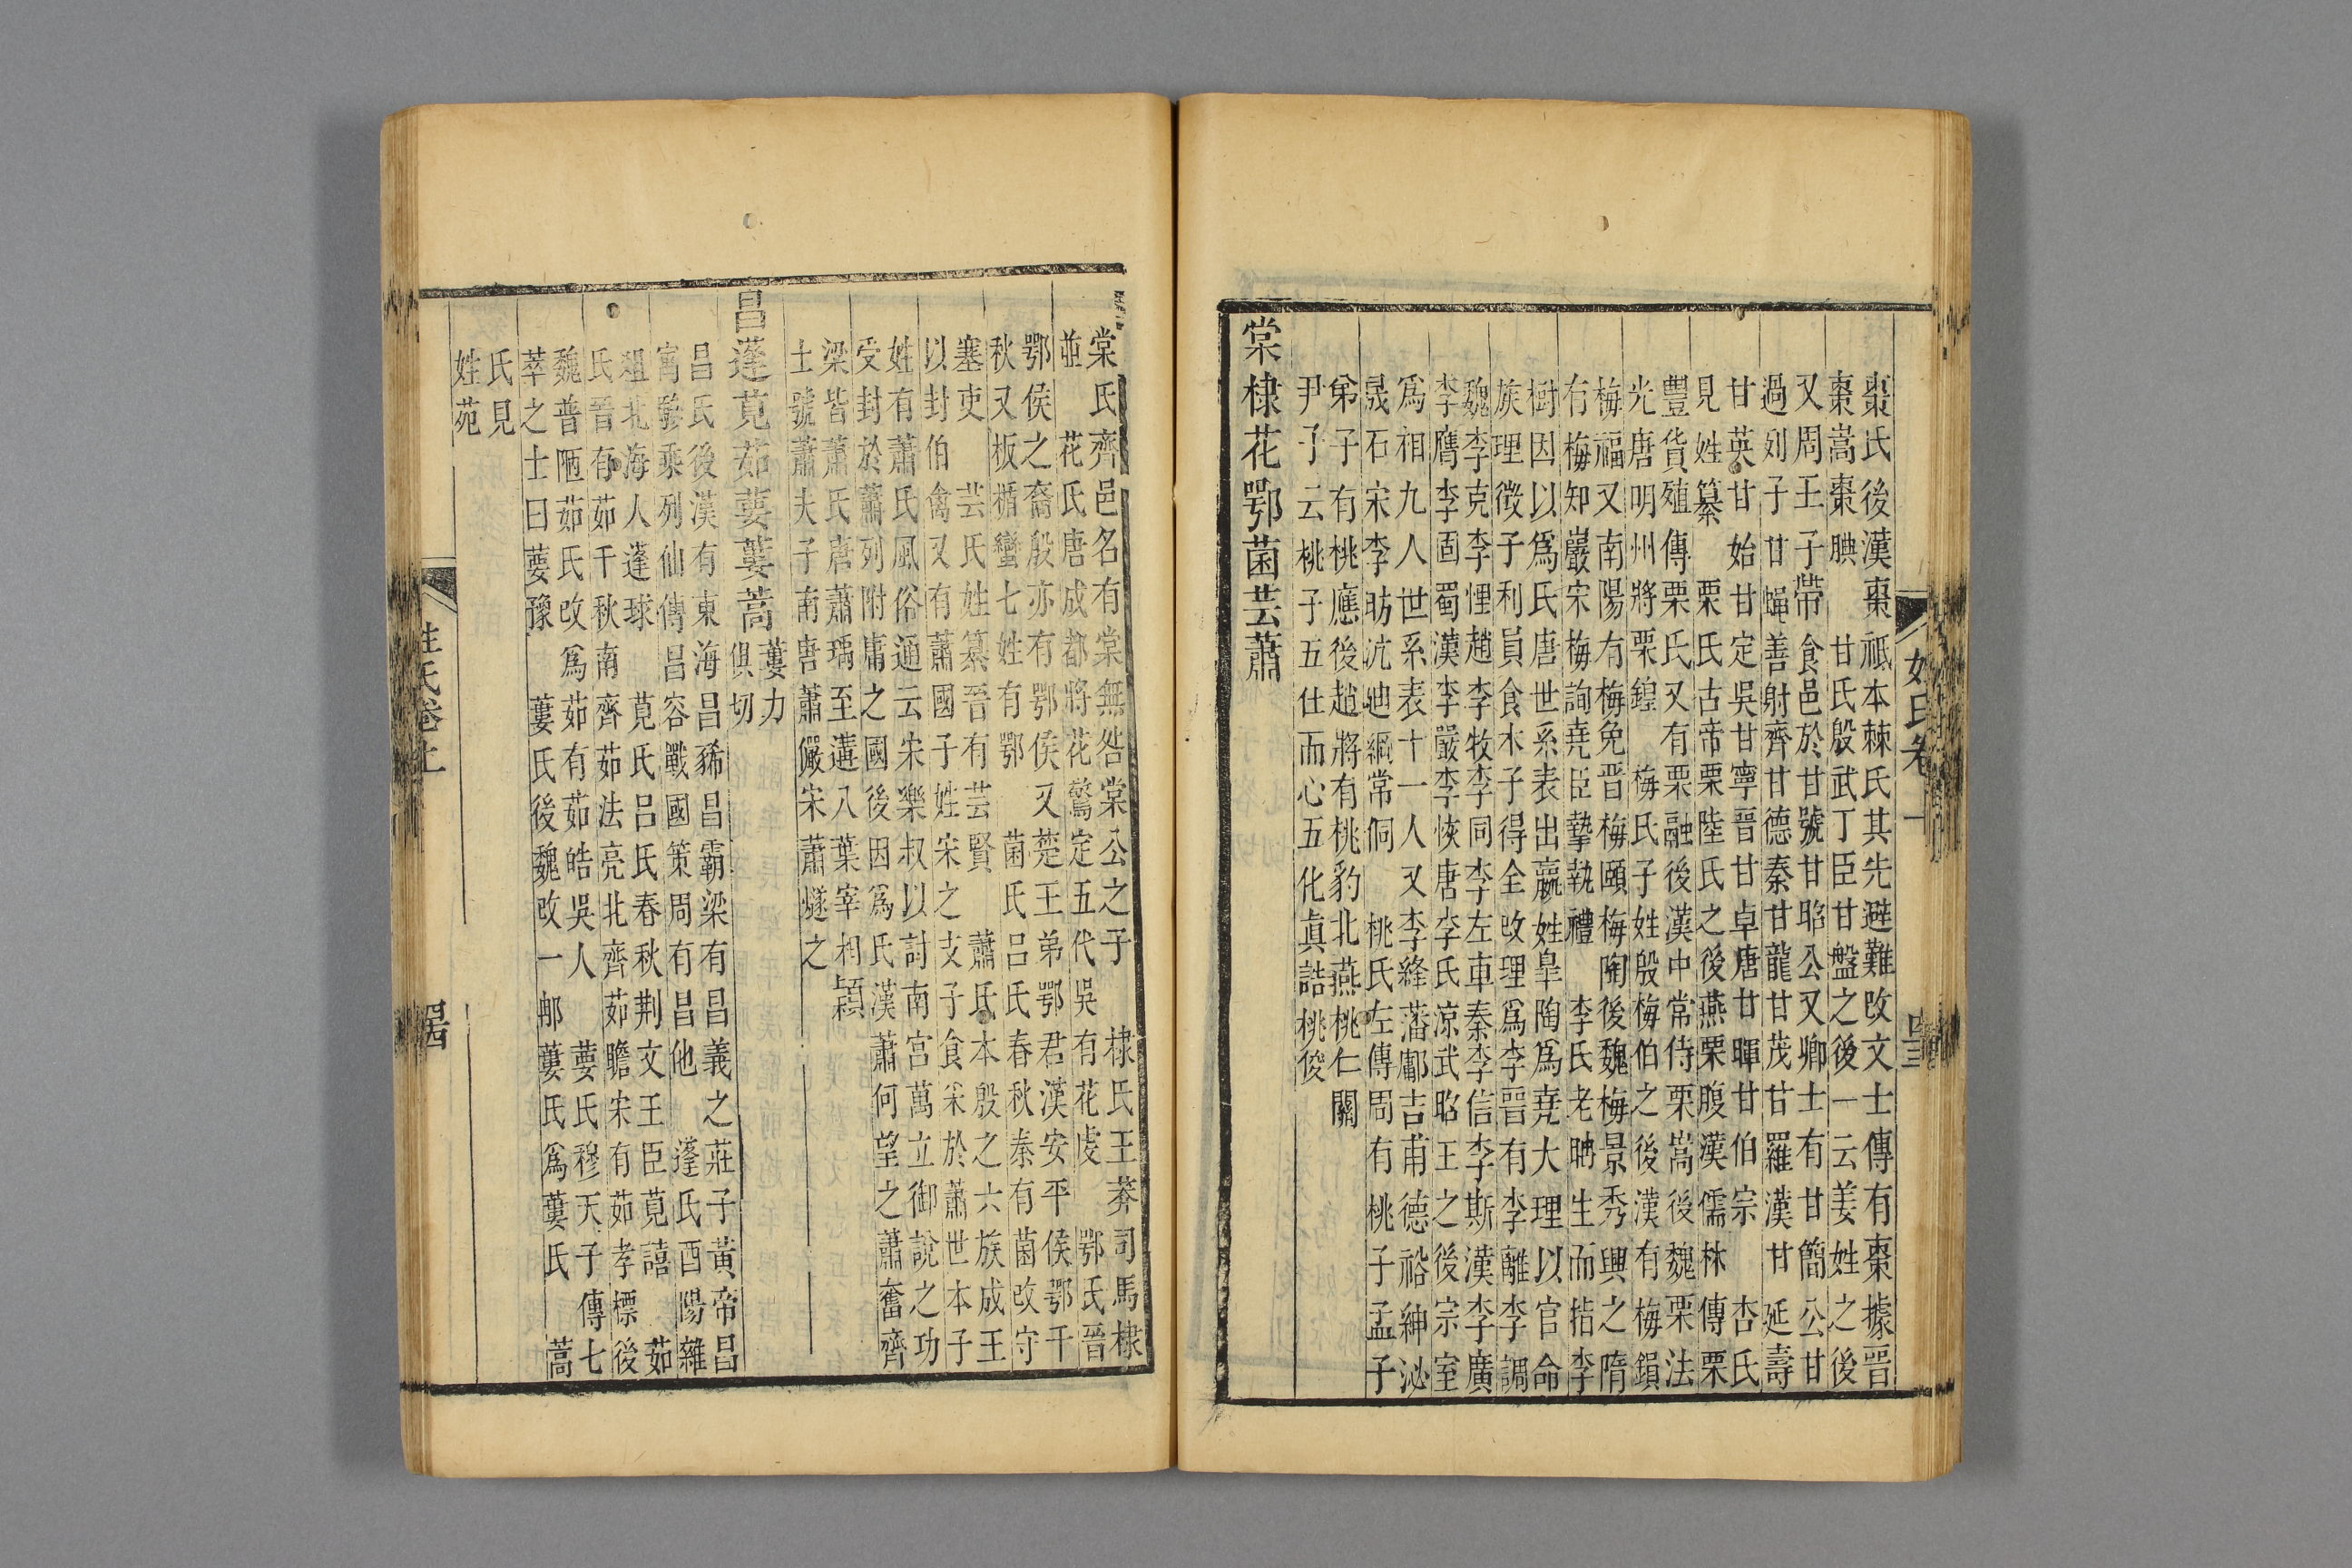 棗氏後漢棗祗本棘氏其先避難改文士傳有棗據晉
棗嵩棗腆　甘氏殷武丁臣甘盤之後一云姜姓之後
又周王子帶食邑於甘號甘昭公又卿士有甘簡公甘
過列子甘蠅善射齊甘德秦甘龍甘茂甘羅漢甘延壽
甘英甘始甘定吳甘寧晉甘卓唐甘暉甘伯宗　杏氏
見姓纂　栗氏古帝栗陸氏之後燕栗腹漢儒林傳栗
豐貨殖傳栗氏又有栗融後漢中常侍栗嵩後魏栗法
光唐明州將栗鍠　梅氏子姓殷梅伯之後漢有梅鋗
梅福又南陽有梅免晉梅頤梅陶後魏梅景秀興之隋
有梅知巖宋梅詢堯臣摯執禮　李氏老聃生而指李
樹因以爲氏唐世系表出嬴姓皐陶爲堯大理以官命
族理徵子利員食木子得全改理爲李晉有李離李調
魏李克李悝趙李牧李同李左車秦李信李斯漢李廣
李膺李固蜀漢李嚴李恢唐李氏凉武昭王之後宗室
爲相九人世系表十一人又李絳藩鄘吉甫德裕紳泌
晟石宋李昉沆廸綱常侗　桃氏左傳周有桃子孟子
弟子有桃應後趙將有桃豹北燕桃仁關
尹子云桃子五仕而心五化眞誥桃俊
棠棣花鄂菌芸蕭
姓氏卷上
四三
棠氏齊邑名有棠無咎棠公之子　棣氏王莽司馬棣
並　花氏唐成都將花驚定五代吳有花虔　鄂氏晉
鄂侯之裔殷亦有鄂侯又楚王弟鄂君漢安平侯鄂千
秋又板楯蠻七姓有鄂　菌氏呂氏春秋秦有菌改守
塞吏　芸氏姓纂晉有芸賢　蕭氏本殷之六族成王
以封伯禽又有蕭國子姓宋之支子食采於蕭世本子
姓有蕭氏風俗通云宋樂叔以討南宫萬立御說之功
受封於蕭列附庸之國後因爲氏漢蕭何望之蕭奮齊
梁皆蕭氏唐蕭瑀至遘八葉宰相頴
士號蕭夫子南唐蕭儼宋蕭燧之
昌蓬莧茹葽蔞蒿蔞力俱切
昌氏後漢有東海昌豨昌霸梁有昌義之莊子黃帝昌
寓驂乘列仙傳昌容戰國策周有昌他　蓬氏酉陽雜
俎北海人蓬球　莧氏呂氏春秋荆文王臣莧譆　茹
氏晉有茹千秋南齊茹法亮北齊茹瞻宋有茹孝標後
魏普陋茹氏改爲茹有茹皓吳人　葽氏穆天子傳七
萃之士曰葽豫　蔞氏後魏改一郍蔞氏爲蔞氏　蒿
氏見
姓苑
姓氏卷上
四四